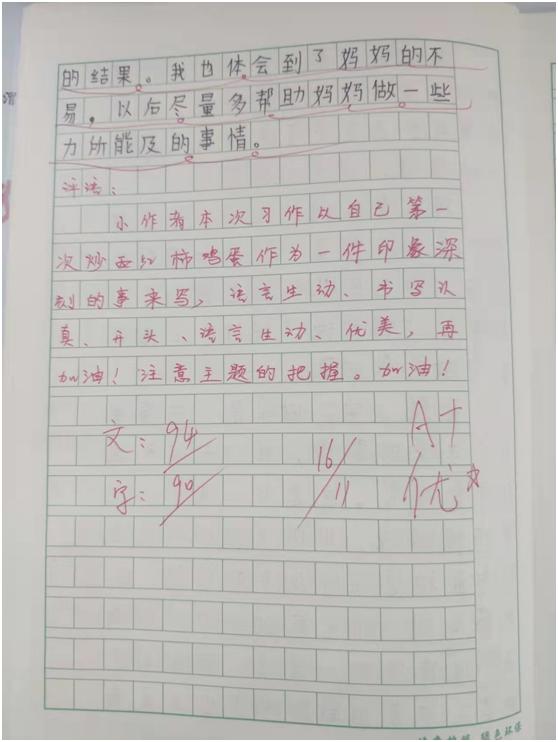 的结果。我也体会到了妈妈的不
易，以后尽量多帮助妈妈做一些
力所能及的事情。
评语：
小作者本次习作以自己第一
次炒西红柿鸡蛋作为一件印象深
刻的事来写，语言生动、书写认
真、开头、语言生动、优美，再
加油！注意主题的把握。加油！
文：94 A+
字：90 16/11 优
绿色环保